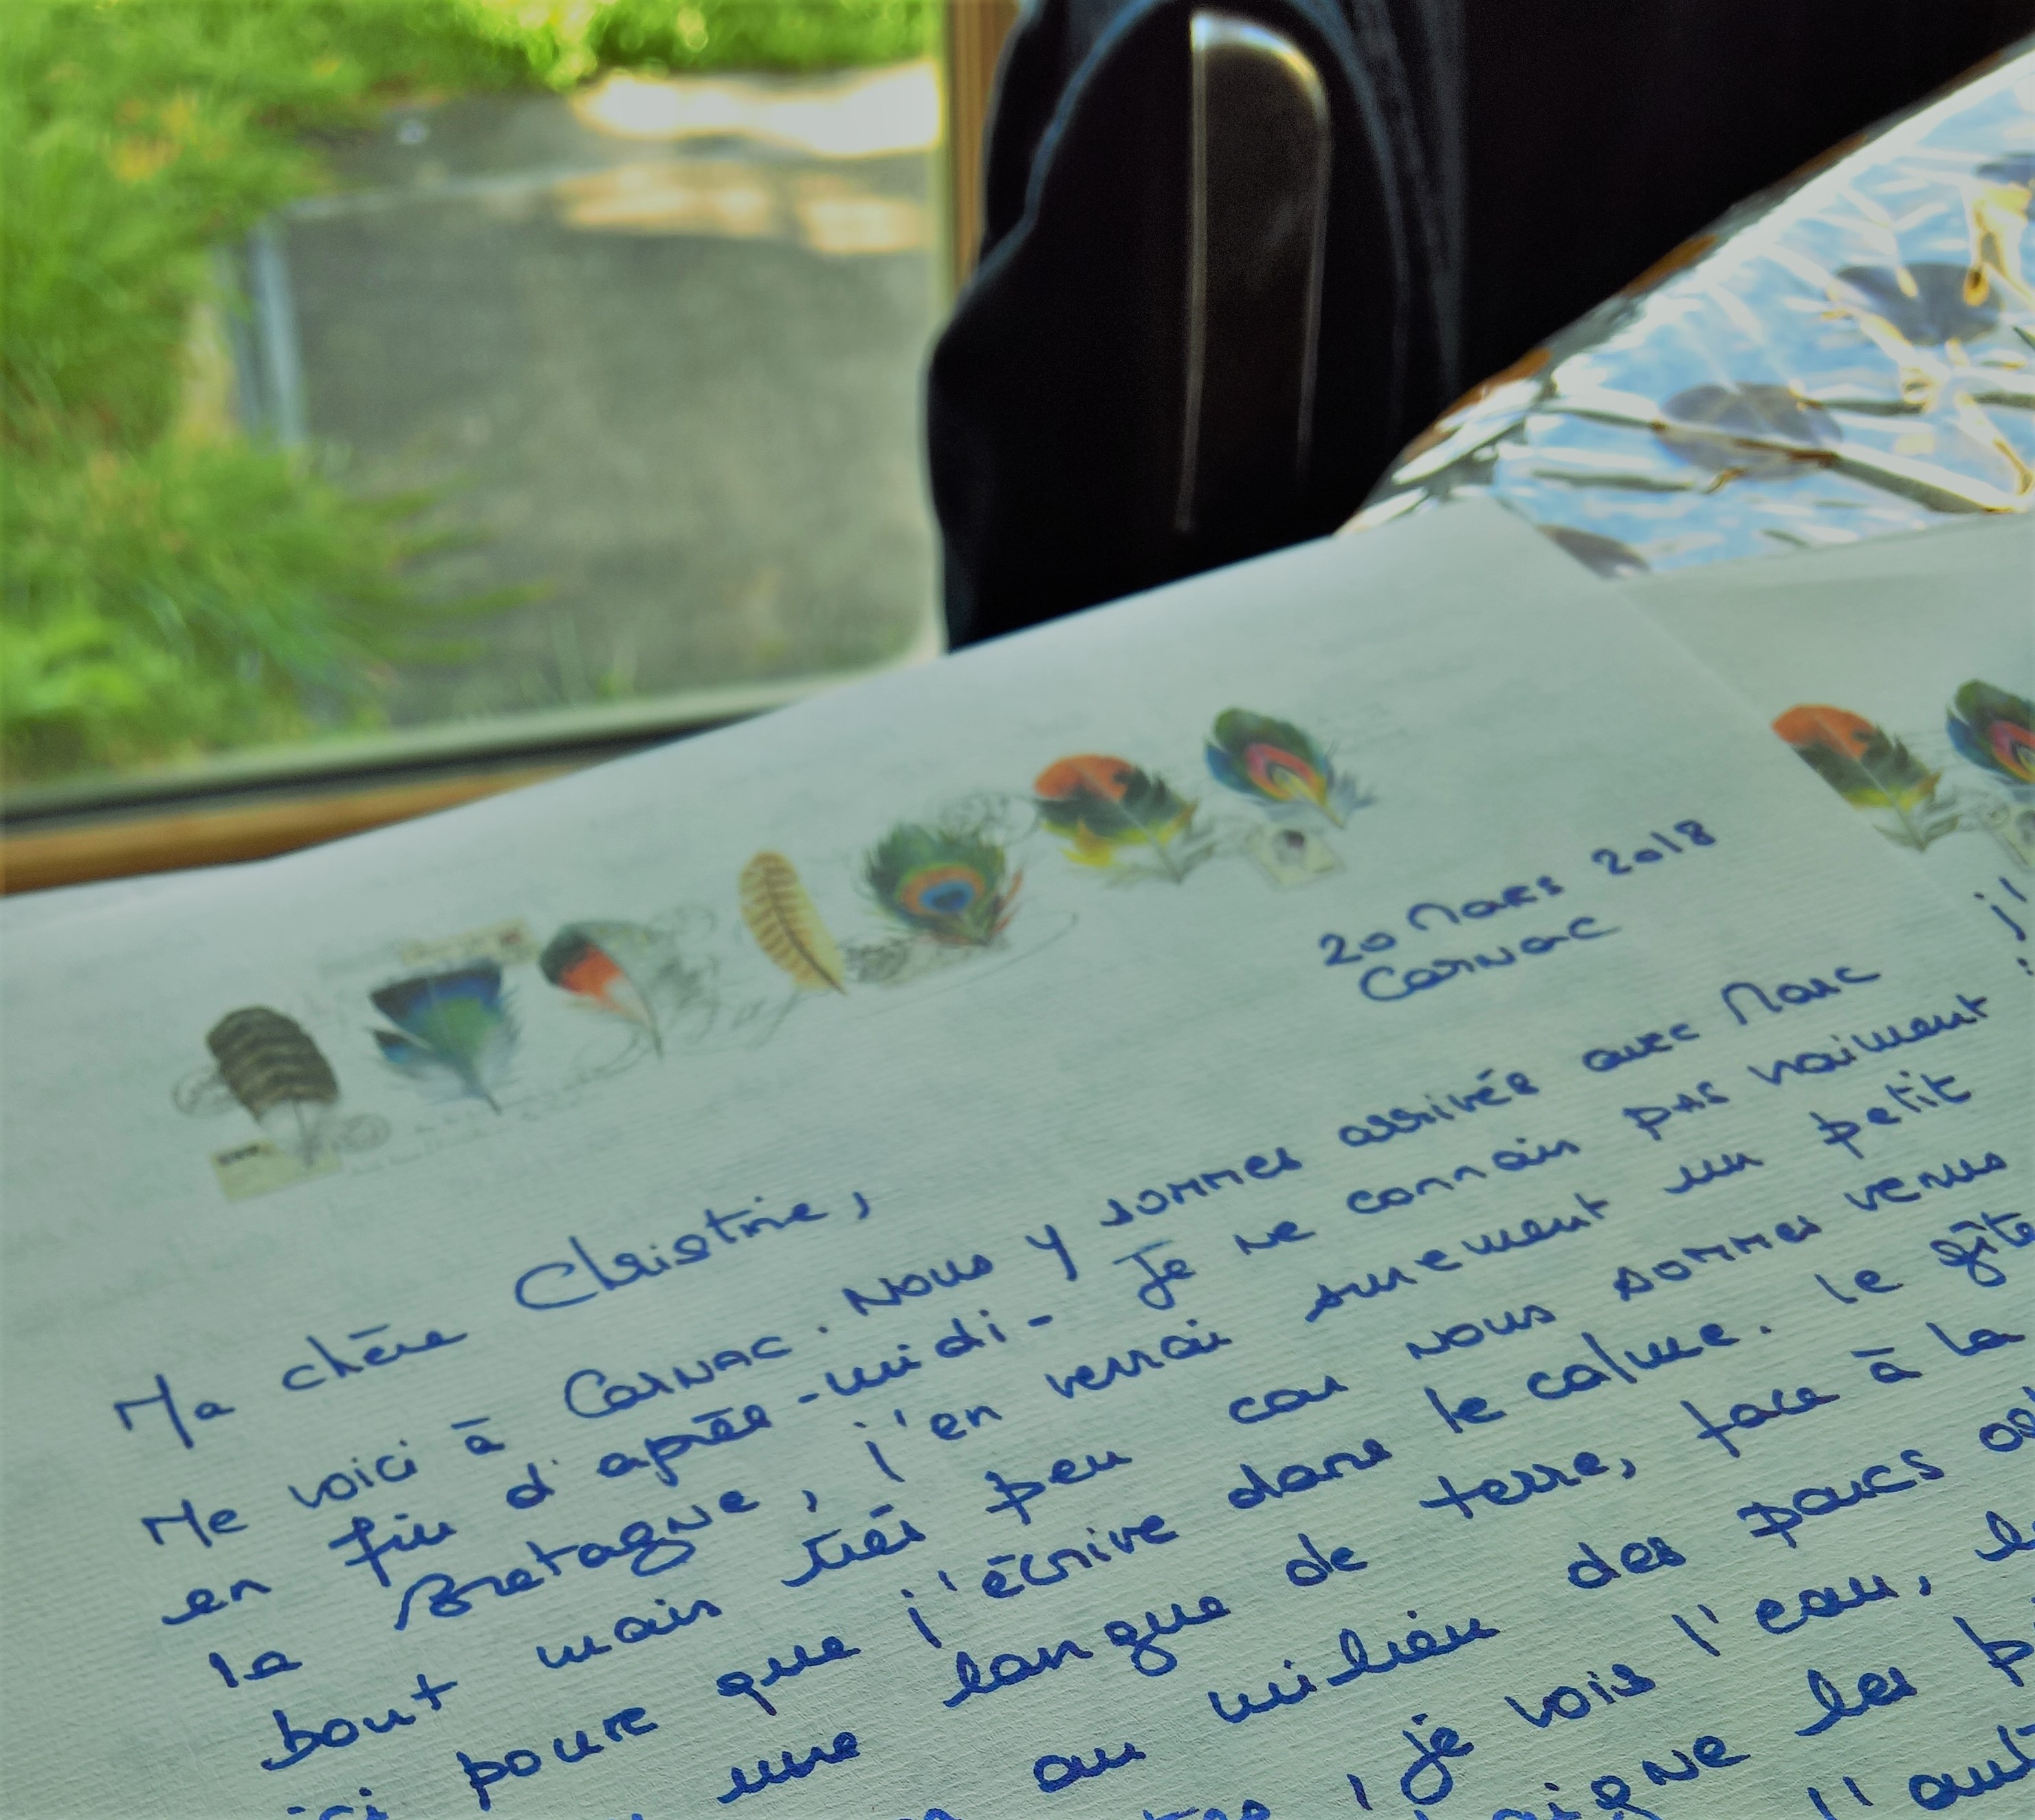 20 Mars 2018
Carnac
Ma chère Christine,
Me voici à Carnac. Nous y sommes arrivés avec Marc
en fin d'après-midi - Je ne connais pas vraiment
la Bretagne, j'en verrai surement un petit
bout mais très peu car nous sommes venus
ici pour que j'écrive dans le calme. Le gîte
une langue de terre, face à la
au milieu des parcs
je vois l'eau,
les
j'